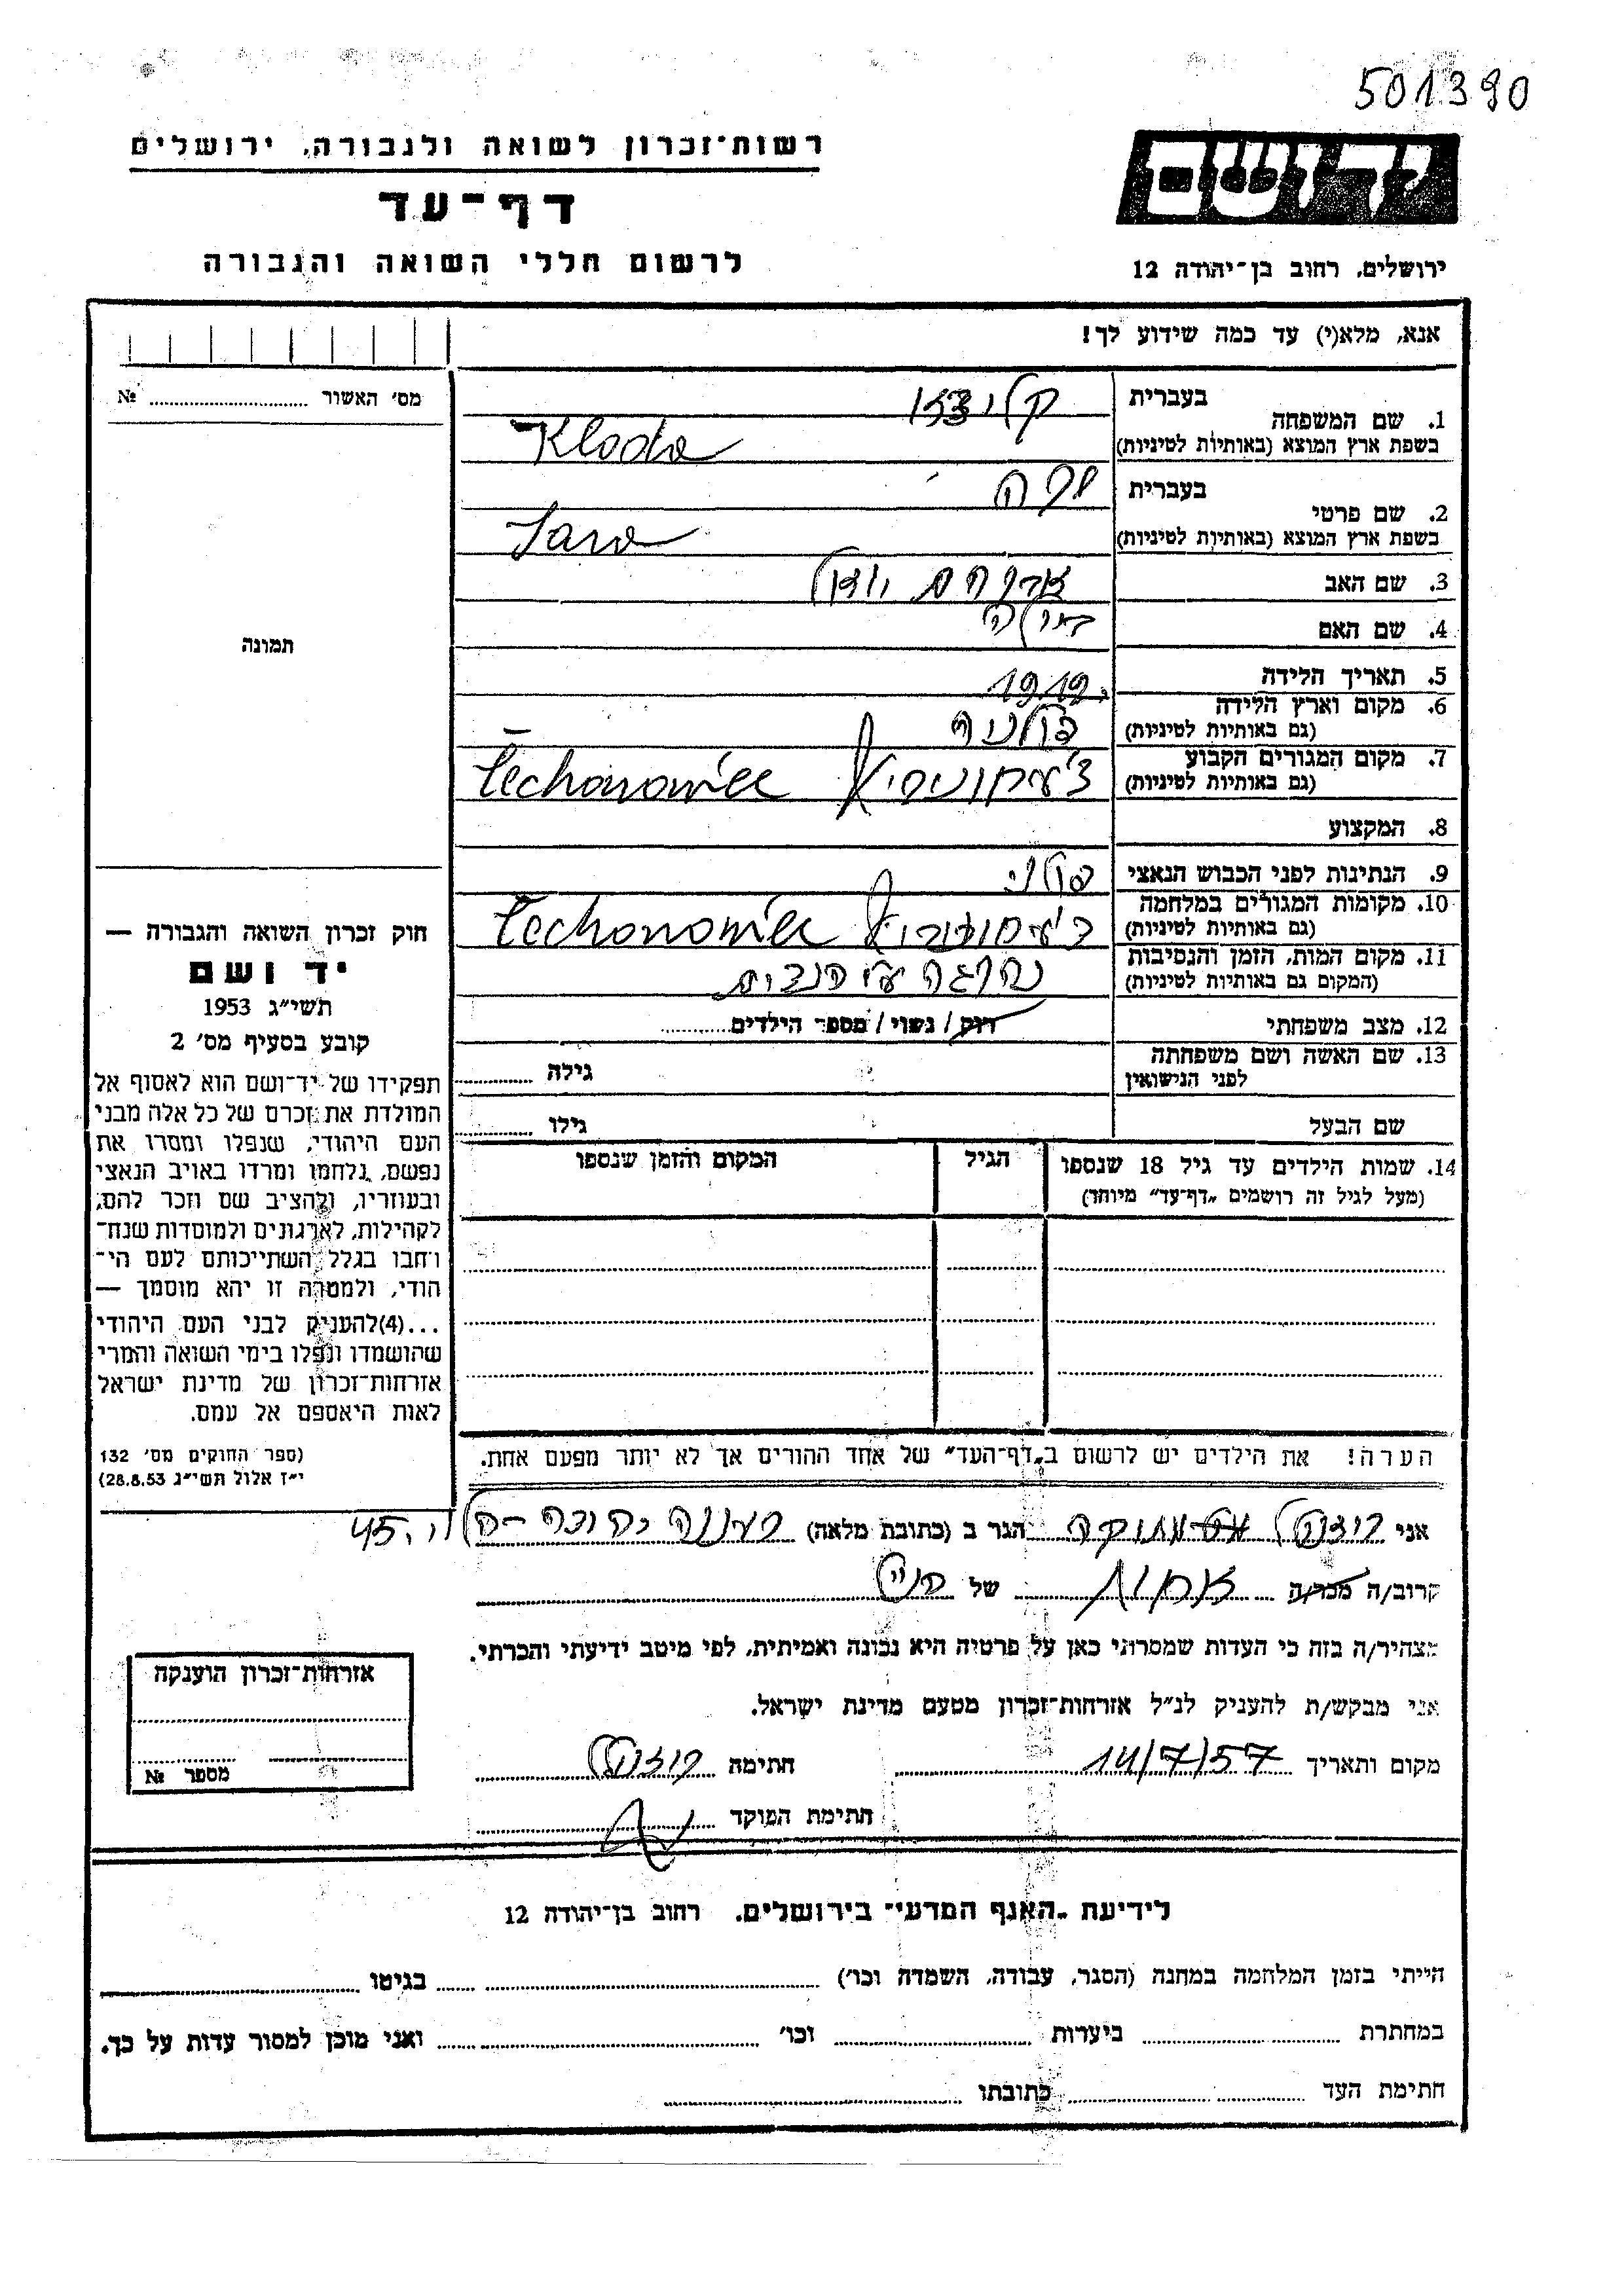 501390
רשות־זכרון לשואה ולגבורה, ירושלים
דף־עד
לרשום חללי השואה והגבורה
יד ושם
ירושלים, רחוב בן־יהודה 12
אנא, מלא(י) עד כמה שידוע לך!
מס׳ האשור № 
תמונה
חוק זכרון השואה והגבורה —
יד ושם
תשי״ג 1953
קובע בסעיף מס׳ 2
תפקידו של יד־ושם הוא לאסוף אל
המולדת את זכרם של כל אלה מבני
העם היהודי, שנפלו ומסרו את
נפשם, נלחמו ומרדו באויב הנאצי
ובעוזריו, ולהציב שם וזכר להם,
לקהילות, לארגונים ולמוסדות שנח־
רחבו בגלל השתייכותם לעם הי־
הודי, ולמטרה זו יהא מוסמך —
...(4) להעניק לבני העם היהודי
שהושמדו ונפלו בימי השואה והמרי
אזרחות־זכרון של מדינת ישראל
לאות היאספם אל עמם.
(ספר החוקים מס׳ 132
י״ז אלול תשי״ג 28.8.53)
1. שם המשפחה בעברית
בשפת ארץ המוצא (באותיות לטיניות) Kloda
2. שם פרטי בעברית שרה
בשפת ארץ המוצא (באותיות לטיניות) Sara
3. שם האב אברהם
4. שם האם
5. תאריך הלידה 1919
6. מקום וארץ הלידה פולניה
(גם באותיות לטיניות)
7. מקום המגורים הקבוע
(גם באותיות לטיניות)
8. המקצוע
9. הנתינות לפני הכבוש הנאצי פולני
10. מקומות המגורים במלחמה
(גם באותיות לטיניות)
11. מקום המות, הזמן והנסיבות
(המקום גם באותיות לטיניות)
12. מצב משפחתי רוק / נשוי / מספר הילדים
13. שם האשה ושם משפחתה גילה
לפני הנישואין
שם הבעל גילו
14. שמות הילדים עד גיל 18 שנספו הגיל המקום והזמן שנספו
(מעל לגיל זה רושמים „דף־עד״ מיוחד)
הערה! את הילדים יש לרשום ב„דף־העד״ של אחד ההורים אך לא יותר מפעם אחת.
אני הגר ב (כתובת מלאה) 45
קרוב/ה מכר/ה אחות של
מצהיר/ה בזה כי העדות שמסרתי כאן על פרטיה היא נכונה ואמיתית, לפי מיטב ידיעתי והכרתי.
אני מבקש/ת להעניק לנ״ל אזרחות־זכרון מטעם מדינת ישראל.
מקום ותאריך 14/7/57 חתימה
חתימת הפוקד
אזרחות־זכרון הוענקה
מספר №
לידיעת „האגף המדעי״ בירושלים, רחוב בן־יהודה 12
הייתי בזמן המלחמה במחנה (הסגר, עבודה, השמדה וכו׳) בגיטו
במחתרת ביערות וכו׳ ואני מוכן למסור עדות על כך.
חתימת העד כתובתו